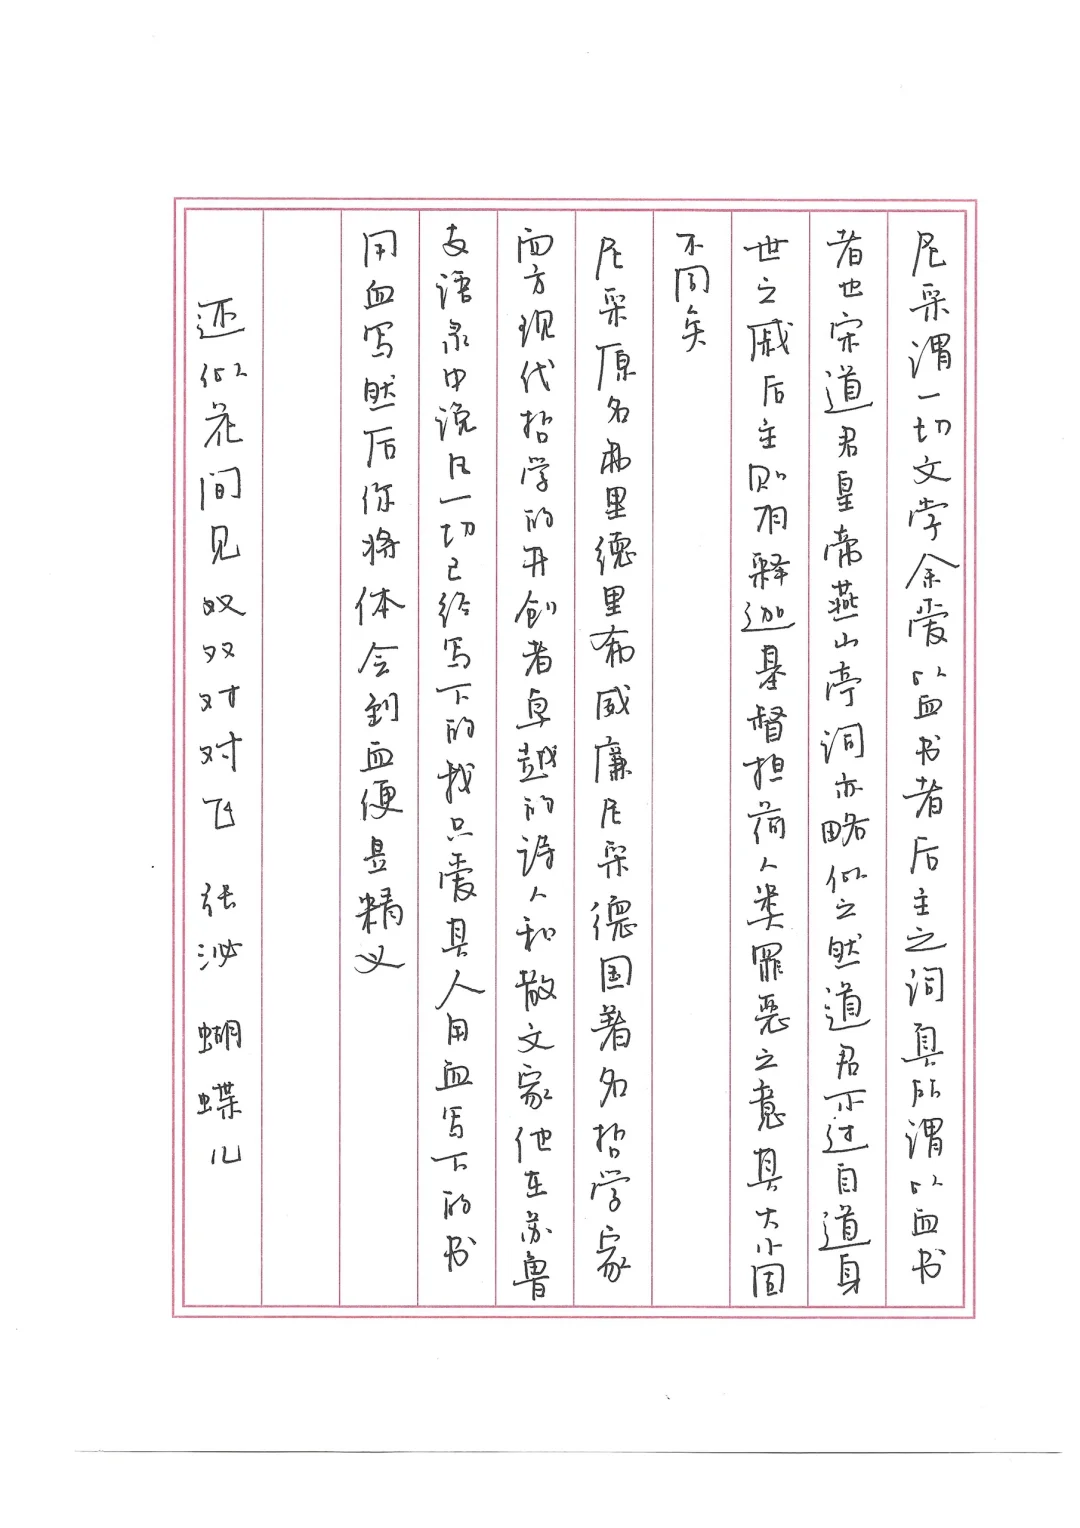 尼采谓一切文学余爱以血书者后主之词真所谓以血书
者也宋道君皇帝燕山亭词亦略似之然道君不过自道身
世之戚后主则有释迦基督担荷人类罪恶之意其大小固
不同矣
尼采原名弗里德里希威廉尼采德国著名哲学家
西方现代哲学的开创者卓越的诗人和散文家他在苏鲁
支语录中说凡一切已经写下的我只爱其人用血写下的书
用血写然后你将体会到血便是精义
还似花间见双双对对飞 张泌 蝴蝶儿